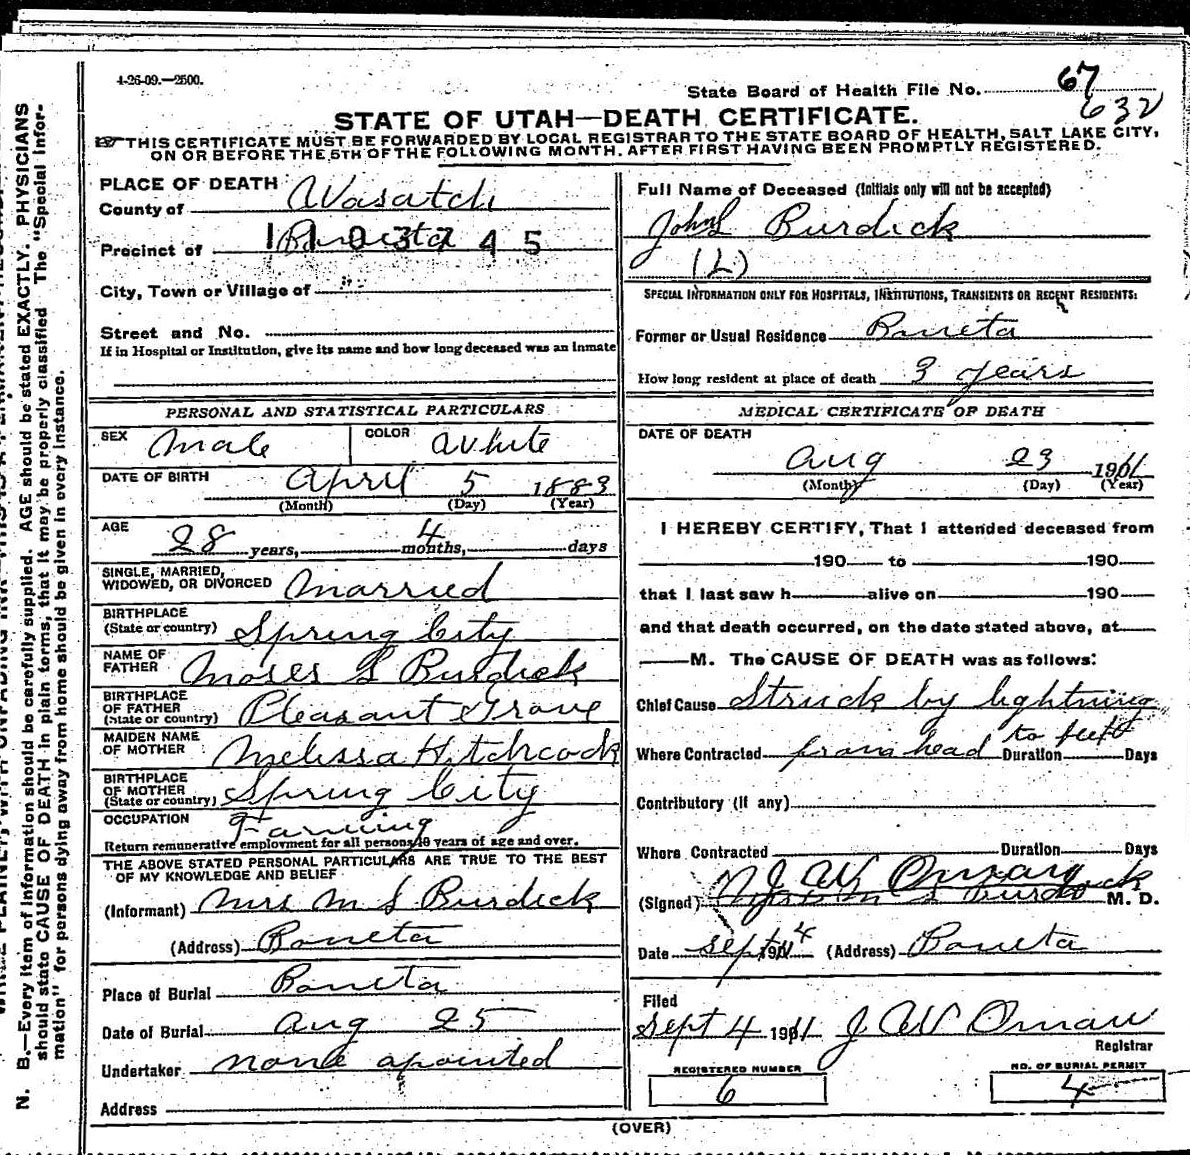 4-26-09.—2500.
State Board of Health File No. 67
632
STATE OF UTAH—DEATH CERTIFICATE.
THIS CERTIFICATE MUST BE FORWARDED BY LOCAL REGISTRAR TO THE STATE BOARD OF HEALTH, SALT LAKE CITY,
ON OR BEFORE THE 5TH OF THE FOLLOWING MONTH, AFTER FIRST HAVING BEEN PROMPTLY REGISTERED.
PLACE OF DEATH
County of Wasatch
Precinct of Boneta
City, Town or Village of
Street and No.
If in Hospital or Institution, give its name and how long deceased was an Inmate
PERSONAL AND STATISTICAL PARTICULARS
SEX Male COLOR White
DATE OF BIRTH April 5 1883
(Month) (Day) (Year)
AGE 28 years, 4 months, days
SINGLE, MARRIED,
WIDOWED, OR DIVORCED Married
BIRTHPLACE
(State or country) Spring City
NAME OF
FATHER Moses S Burdick
BIRTHPLACE
OF FATHER
(State or country) Pleasant Grove
MAIDEN NAME
OF MOTHER Melissa Hitchcock
BIRTHPLACE
OF MOTHER
(State or country) Spring City
OCCUPATION Farming
Return remunerative employment for all persons 10 years of age and over.
THE ABOVE STATED PERSONAL PARTICULARS ARE TRUE TO THE BEST
OF MY KNOWLEDGE AND BELIEF
(Informant) Mrs M S Burdick
(Address) Boneta
Place of Burial Boneta
Date of Burial Aug 25
Undertaker none apointed
Address
Full Name of Deceased (Initials only will not be accepted)
John L Burdick
(L)
SPECIAL INFORMATION ONLY FOR HOSPITALS, INSTITUTIONS, TRANSIENTS OR RECENT RESIDENTS:
Former or Usual Residence Boneta
How long resident at place of death 3 years
MEDICAL CERTIFICATE OF DEATH
DATE OF DEATH
Aug 23 1911
(Month) (Day) (Year)
I HEREBY CERTIFY, That I attended deceased from
190 to 190
that I last saw h alive on 190
and that death occurred, on the date stated above, at
M. The CAUSE OF DEATH was as follows:
Chief Cause Struck by lightning
Where Contracted from head to feet Duration Days
Contributory (if any)
Where Contracted Duration Days
(Signed) M. D.
Date Sept 4 1911 (Address) Boneta
Filed
Sept 4 1911
Registrar
REGISTERED NUMBER
6
NO. OF BURIAL PERMIT
4
(OVER)
N. B.—Every item of Information should be carefully supplied. AGE should be stated EXACTLY. PHYSICIANS
should state CAUSE OF DEATH in plain terms, that it may be properly classified. The "Special Infor-
mation" for persons dying away from home should be given in every instance.